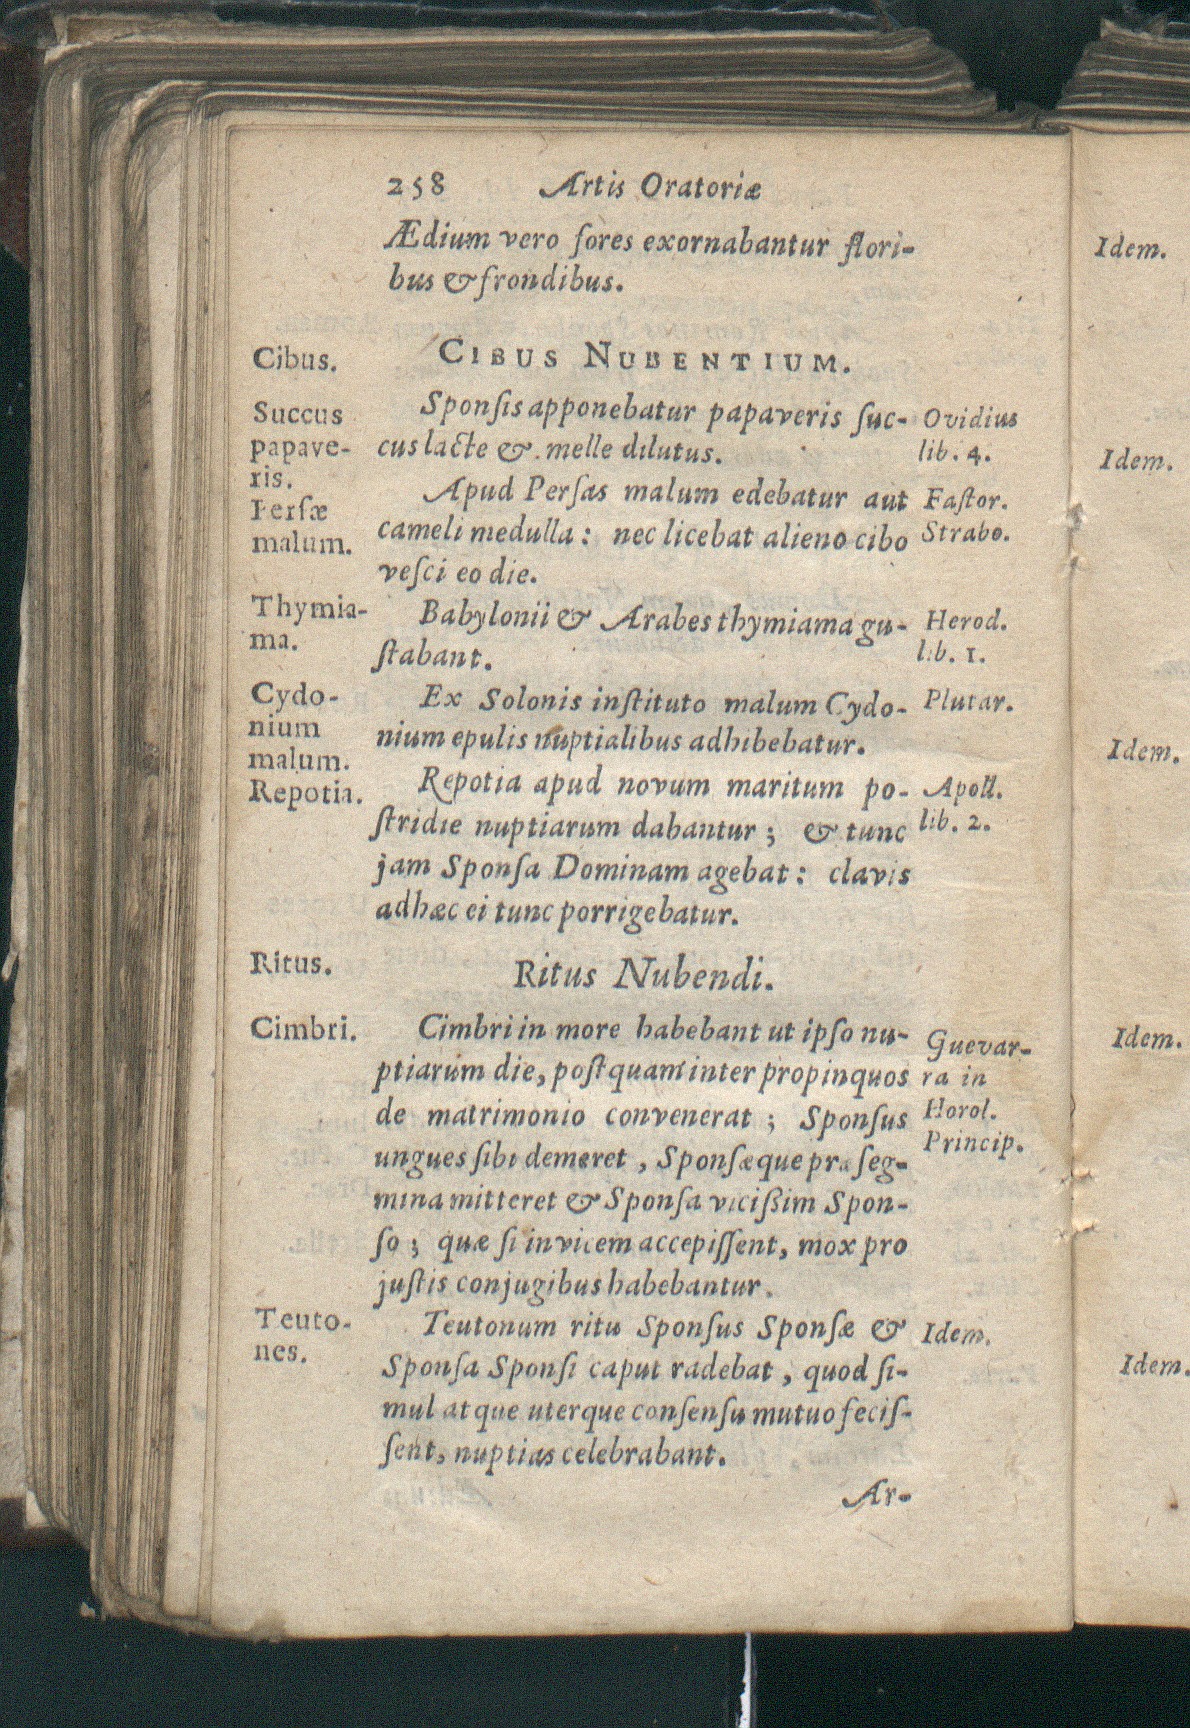 258 Artis Oratoriæ
Ædium vero fores exornabantur flori-
bus & frondibus.
Cibus.
CIBUS NUBENTIUM.
Succus
papave-
ris.
Persæ
malum.
Sponsis apponebatur papaveris suc-
cus lacte & melle dilutus.
Ovidius
lib. 4.
Apud Persas malum edebatur aut
cameli medulla: nec licebat alieno cibo
vesci eo die.
Fastor.
Strabo.
Thymia-
ma.
Babylonii & Arabes thymiama gu-
stabant.
Herod.
lib. 1.
Cydo-
nium
malum.
Ex Solonis instituto malum Cydo-
nium epulis nuptialibus adhibebatur.
Plutar.
Repotia.
Repotia apud novum maritum po-
stridie nuptiarum dabantur; & tunc
jam Sponsa Dominam agebat: clavis
adhæc ei tunc porrigebatur.
Apoll.
lib. 2.
Ritus.
Ritus Nubendi.
Cimbri.
Cimbri in more habebant ut ipso nu-
ptiarum die, postquam inter propinquos
de matrimonio convenerat; Sponsus
ungues sibi demeret, Sponsæque præseg-
mina mitteret & Sponsa vicißim Spon-
so; quæ si invicem accepissent, mox pro
justis conjugibus habebantur.
Guevar-
ra in
Horol.
Princip.
Teuto-
nes.
Teutonum ritu Sponsus Sponsæ &
Sponsa Sponsi caput radebat, quod si-
mul atque uterque consensu mutuo fecis-
sent, nuptias celebrabant.
Idem.
Ar-
Idem.
Idem.
Idem.
Idem.
Idem.